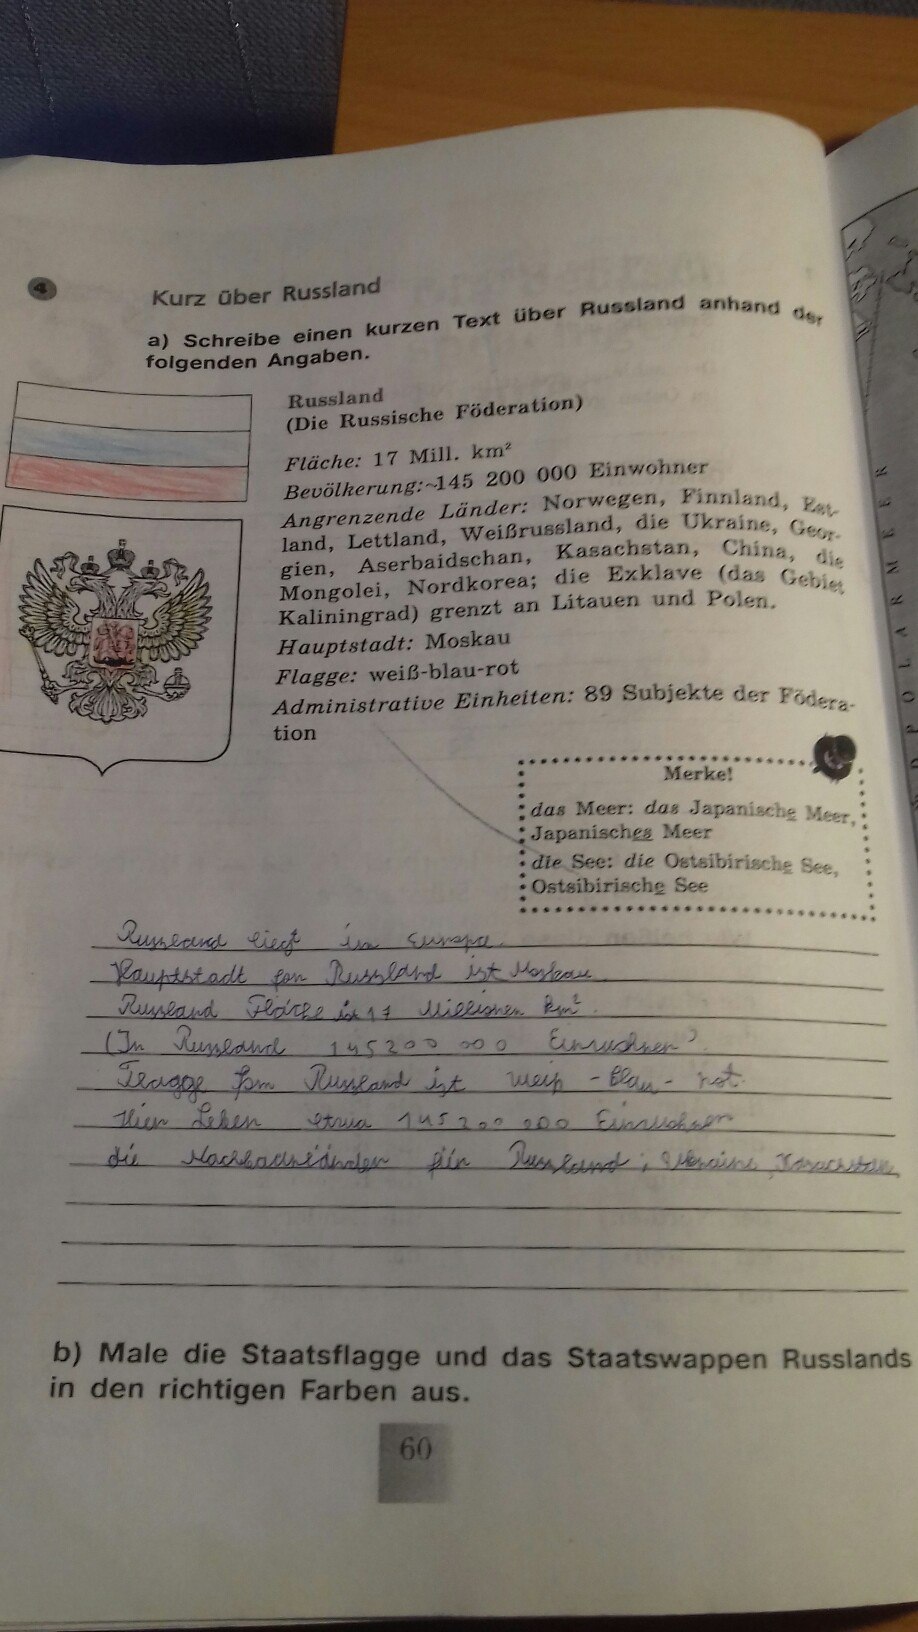 4
Kurz über Russland
a) Schreibe einen kurzen Text über Russland anhand der
folgenden Angaben.
Russland
(Die Russische Föderation)
Fläche: 17 Mill. km²
Bevölkerung: ~145 200 000 Einwohner
Angrenzende Länder: Norwegen, Finnland, Est-
land, Lettland, Weißrussland, die Ukraine, Geor-
gien, Aserbaidschan, Kasachstan, China, die
Mongolei, Nordkorea; die Exklave (das Gebiet
Kaliningrad) grenzt an Litauen und Polen.
Hauptstadt: Moskau
Flagge: weiß-blau-rot
Administrative Einheiten: 89 Subjekte der Födera-
tion
Merke!
das Meer: das Japanische Meer,
Japanisches Meer
die See: die Ostsibirische See,
Ostsibirische See
Russland liegt in Europa.
Hauptstadt fon Russland ist Moskau
Russland Fläche ist 17 Millionen km².
(In Russland 145200 000 Einwohner)
Flagge fon Russland ist weiß - blau - rot.
Hier Leben etwa 145200000 Einwohner
die für Russland; Ukraine, Kasachstan,
b) Male die Staatsflagge und das Staatswappen Russlands
in den richtigen Farben aus.
60